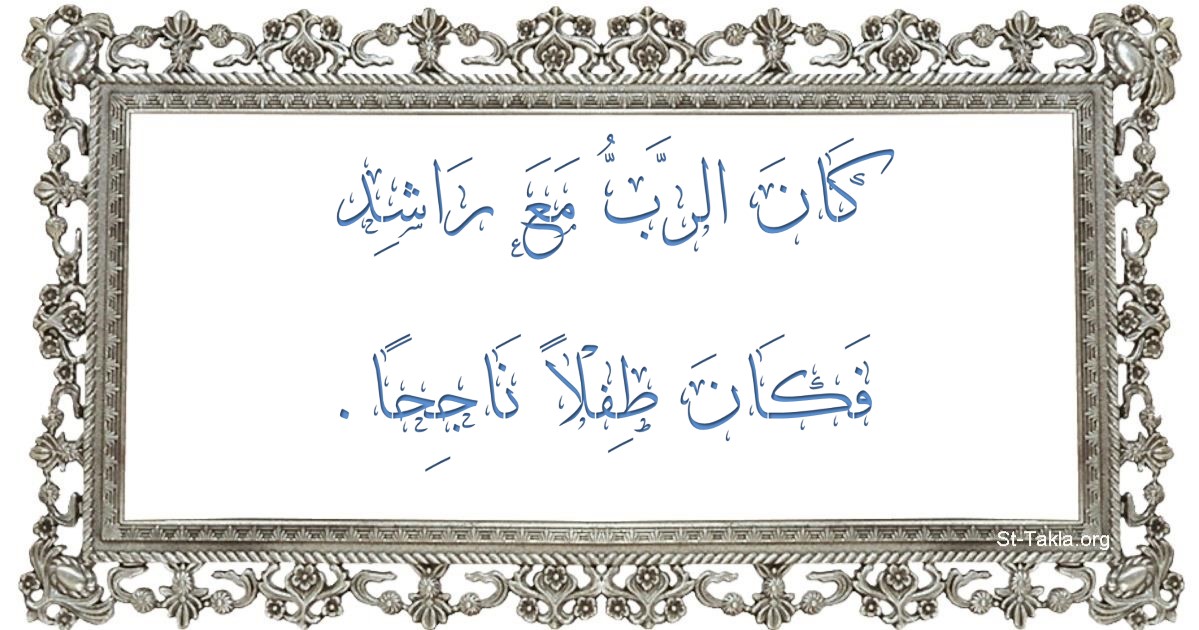 كَانَ الرَّبُّ مَعَ رَاشِدِ
فَكَانَ طِفْلاً نَاجِحًا .
St-Takla.org